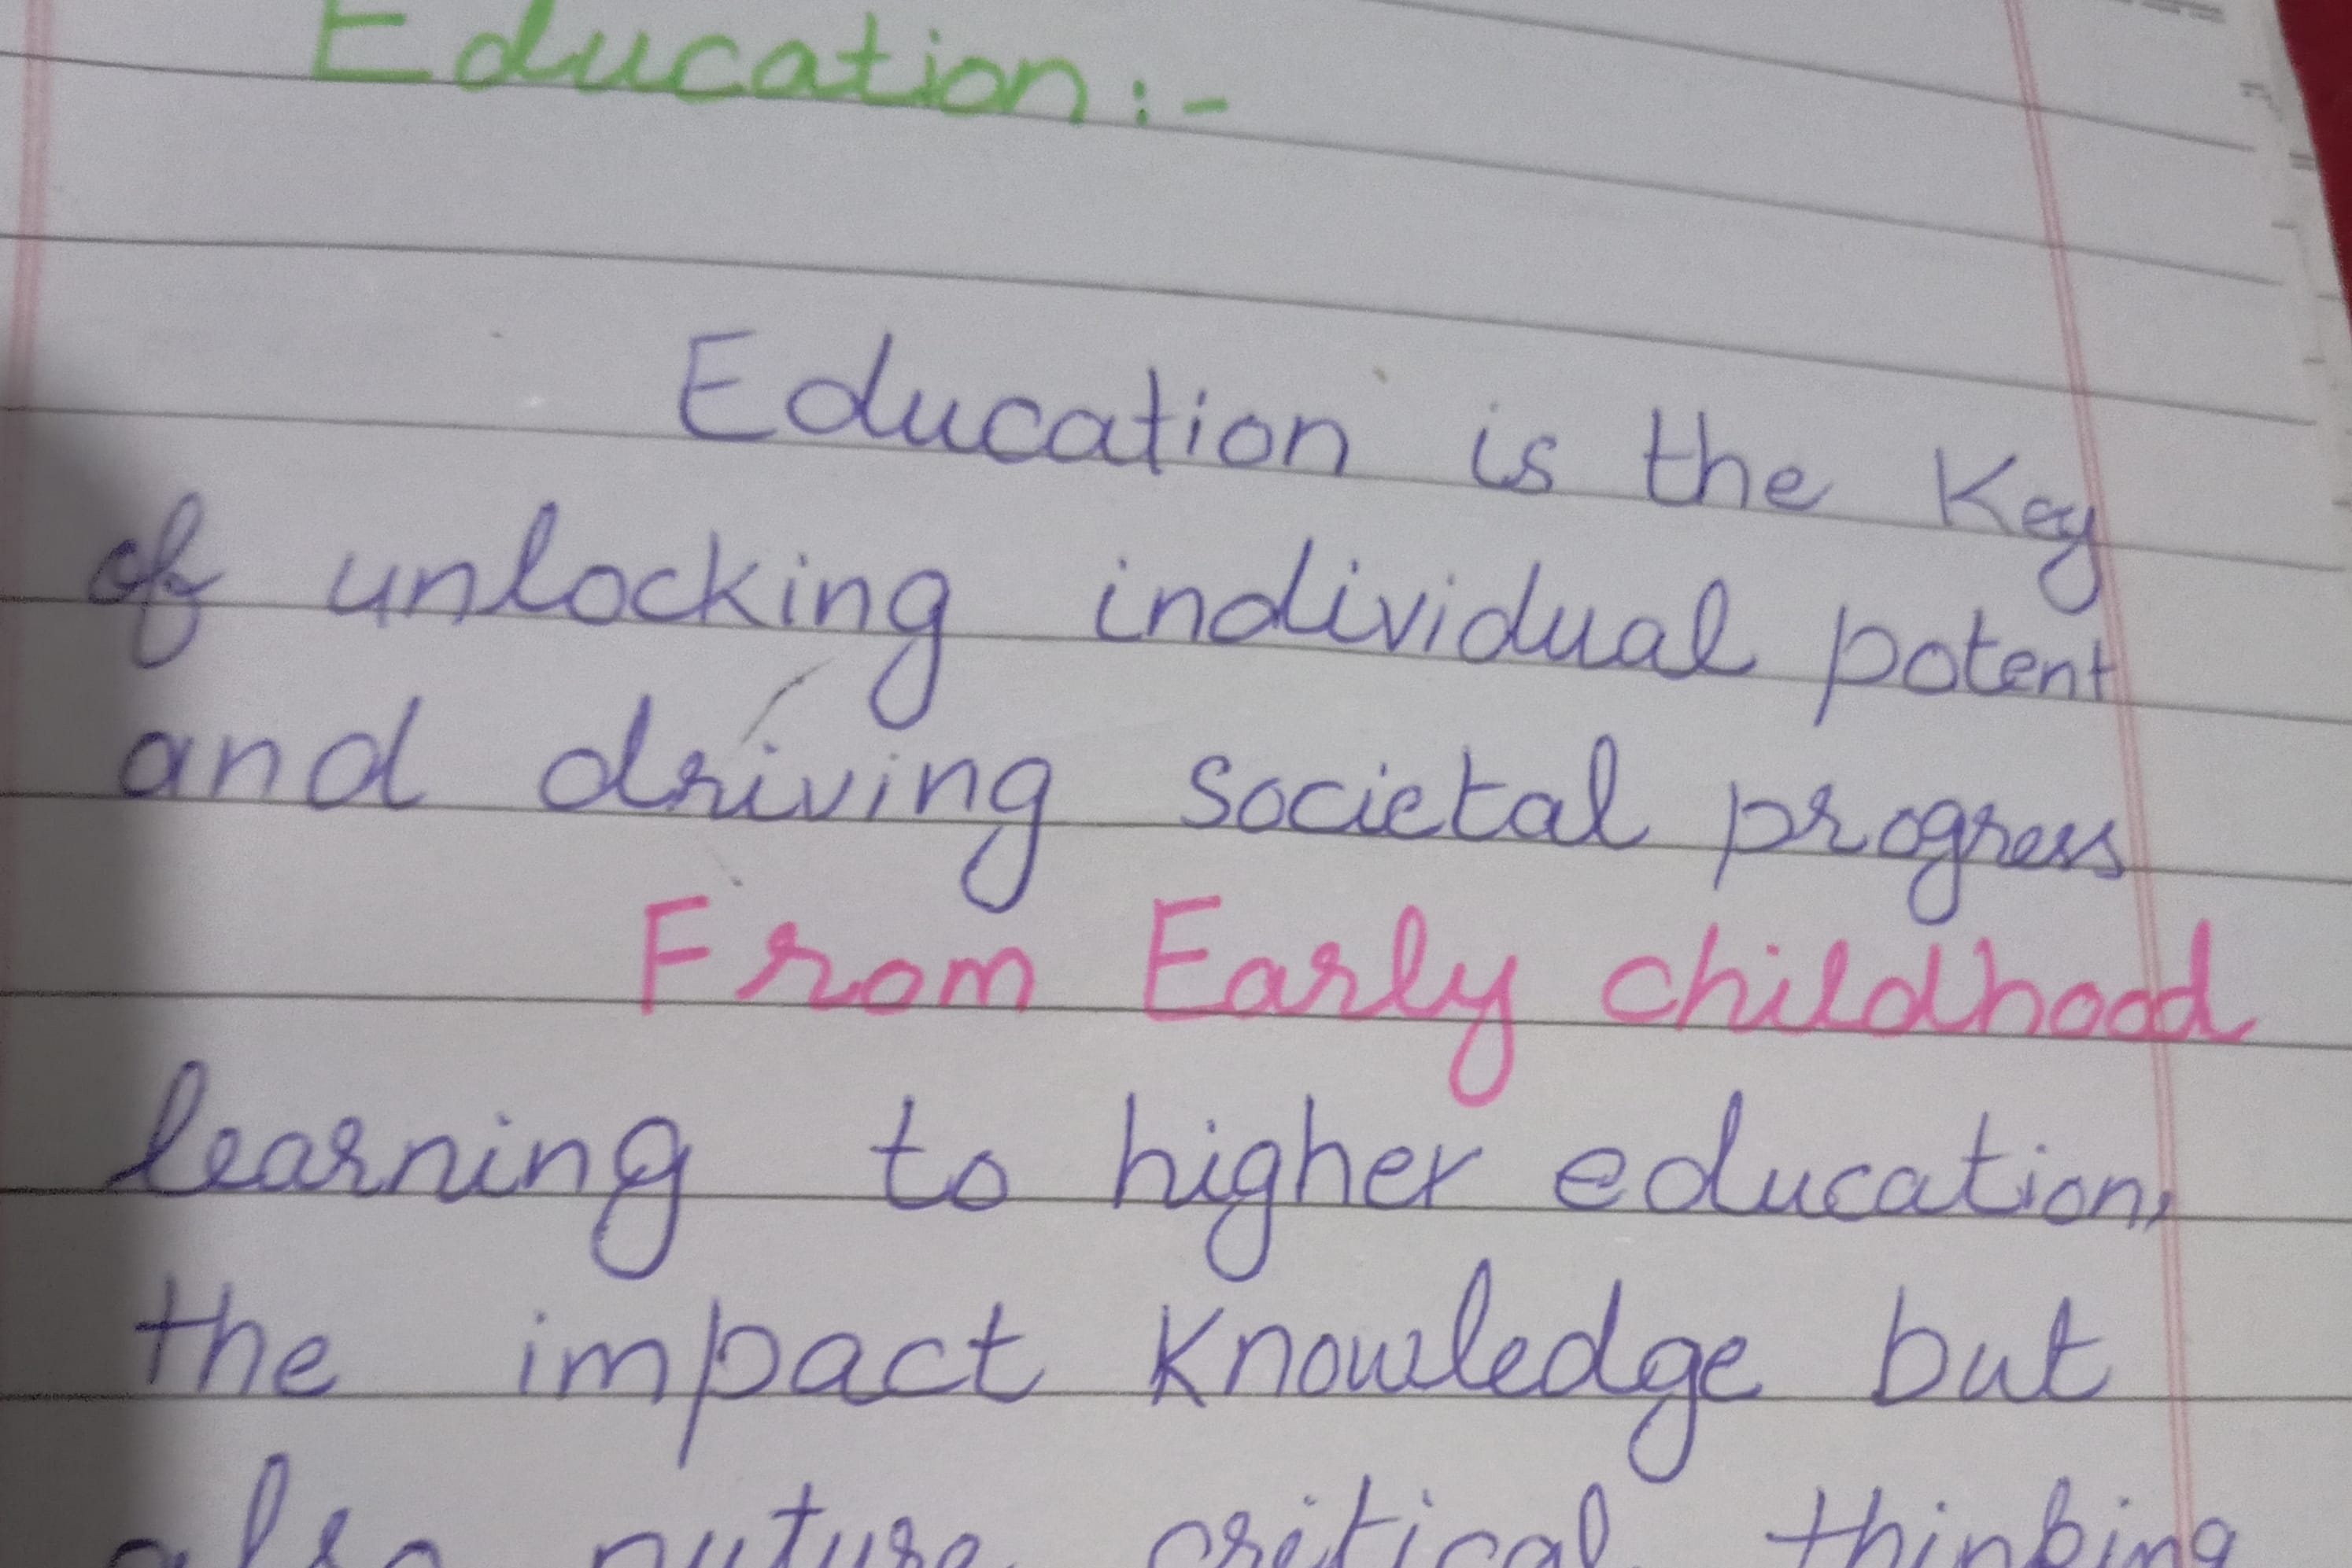 Education :-
Education is the Key
of unlocking individual potent
and driving societal progress
From Early childhood
learning to higher education,
the impact Knowledge but
also nuture critical thinking